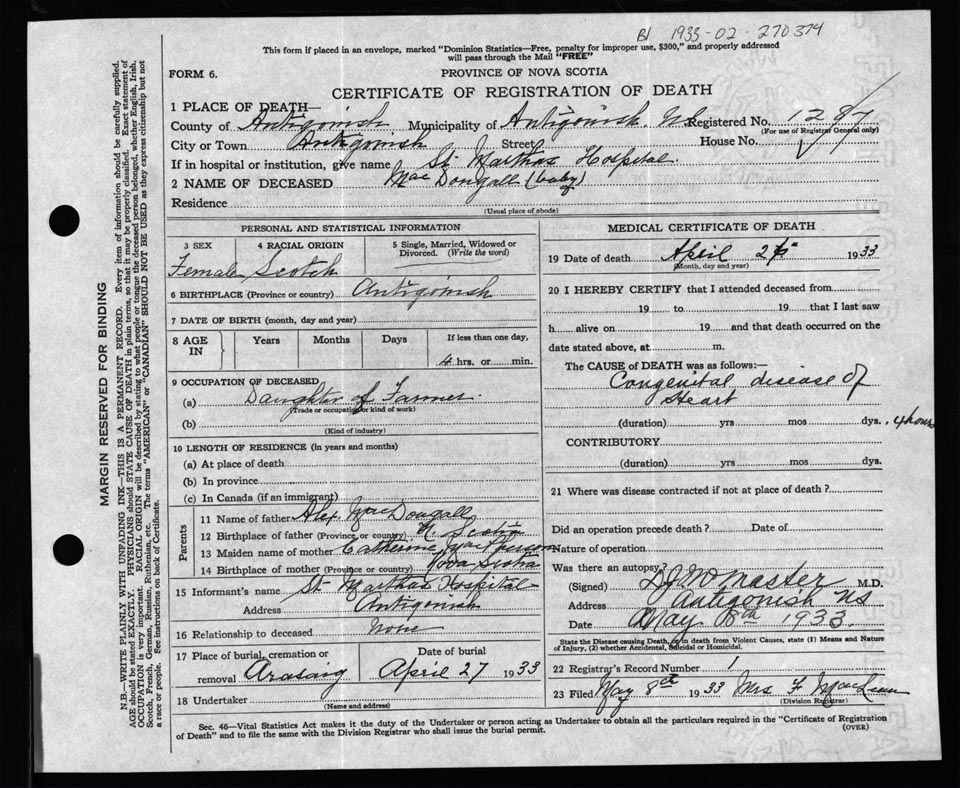 B1 1933-02-270374
This form if placed in an envelope, marked "Dominion Statistics—Free, penalty for improper use, $300," and properly addressed
will pass through the Mail "FREE"
FORM 6.
PROVINCE OF NOVA SCOTIA
CERTIFICATE OF REGISTRATION OF DEATH
1 PLACE OF DEATH—
County of Antigonish Municipality of Antigonish. NS Registered No. 1287
(For use of Registrar General only)
City or Town Antigonish Street House No.
If in hospital or institution, give name St. Marthas Hospital.
2 NAME OF DECEASED MacDougall (baby)
Residence
(Usual place of abode)
PERSONAL AND STATISTICAL INFORMATION
3 SEX 4 RACIAL ORIGIN 5 Single, Married, Widowed or Divorced. (Write the word)
Female Scotch
6 BIRTHPLACE (Province or country) Antigonish
7 DATE OF BIRTH (month, day and year)
8 AGE IN Years Months Days If less than one day,
4 hrs. or min.
9 OCCUPATION OF DECEASED
(a) Daughter of Farmer.
(Trade or occupation or kind of work)
(b)
(Kind of industry)
10 LENGTH OF RESIDENCE (in years and months)
(a) At place of death
(b) In province
(c) In Canada (if an immigrant)
Parents
11 Name of father Alex MacDougall
12 Birthplace of father (Province or country) N. Scotia
13 Maiden name of mother Catherine MacPherson
14 Birthplace of mother (Province or country) Nova Scotia
15 Informant's name St Marthas Hospital
Address Antigonish
16 Relationship to deceased None
17 Place of burial, cremation or removal Arasaig Date of burial April 27 1933
18 Undertaker
(Name and address)
MEDICAL CERTIFICATE OF DEATH
19 Date of death April 26 1933
(Month, day and year)
20 I HEREBY CERTIFY that I attended deceased from
19 to 19 that I last saw
h alive on 19 and that death occurred on the
date stated above, at m.
The CAUSE OF DEATH was as follows:—
Congenital disease of
Heart
(duration) yrs mos dys. 4 hours
CONTRIBUTORY
(duration) yrs mos dys.
21 Where was disease contracted if not at place of death?
Did an operation precede death? Date of
Nature of operation
Was there an autopsy?
(Signed) DJ McMaster M.D.
Address Antigonish NS
Date May 8th 1933.
State the Disease causing Death, or in death from Violent Causes, state (1) Means and Nature
of Injury, (2) whether Accidental, Suicidal or Homicidal.
22 Registrar's Record Number 1
23 Filed May 8th 1933 Mrs F. MacLean
(Division Registrar)
Sec. 46—Vital Statistics Act makes it the duty of the Undertaker or person acting as Undertaker to obtain all the particulars required in the "Certificate of Registration
of Death" and to file the same with the Division Registrar who shall issue the burial permit.
(OVER)
MARGIN RESERVED FOR BINDING
N.B.—WRITE PLAINLY WITH UNFADING INK—THIS IS A PERMANENT RECORD. Every item of information should be carefully supplied.
AGE should be stated EXACTLY. PHYSICIANS should STATE CAUSE OF DEATH in plain terms, so that it may be properly classified. Exact statement of
OCCUPATION is very important. RACIAL ORIGIN will be described by stating to what people or tongue the deceased person belonged, whether English, Irish,
Scotch, French, German, Russian, Ruthenian, etc. The terms "AMERICAN" or "CANADIAN" SHOULD NOT BE USED as they express citizenship but not
a race or people. See instructions on back of Certificate.